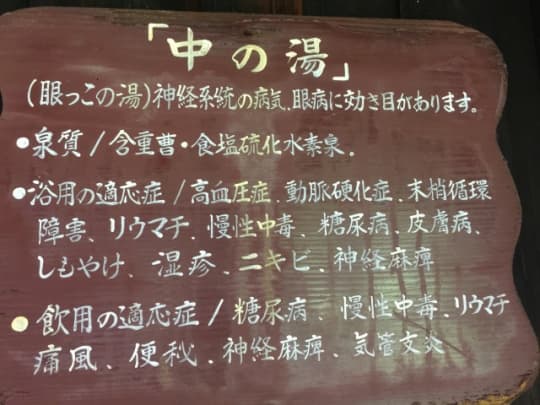 「中の湯」
(眼っこの湯)神経系統の病気、眼病に効き目があります。
●泉質/含重曹・食塩硫化水素泉.
●浴用の適応症/高血圧症、動脈硬化症、末梢循環
障害、リウマチ、慢性中毒、糖尿病、皮膚病、
しもやけ、湿疹、ニキビ、神経麻痺
●飲用の適応症/糖尿病、慢性中毒、リウマチ
痛風、便秘、神経麻痺、気管支炎